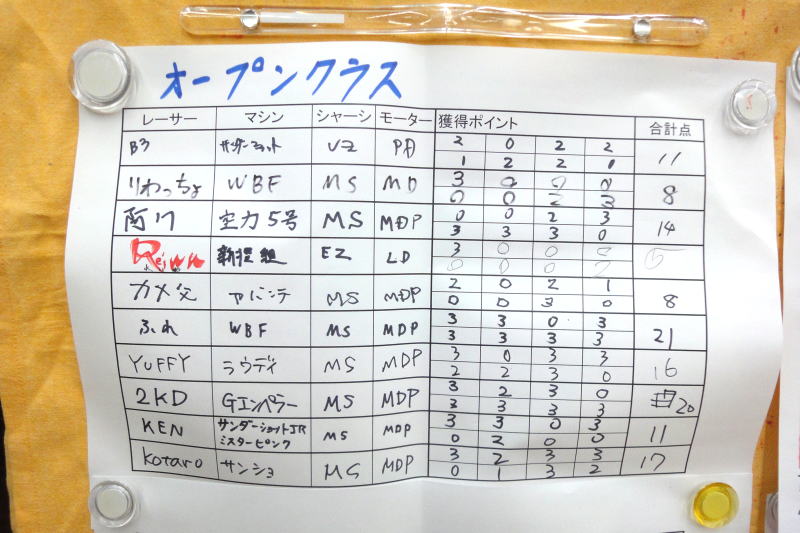 オープンクラス
レーサー マシン シャーシ モーター 獲得ポイント 合計点
B3 VZ PD 2 0 2 2 11
1 2 2 0
りわっちょ WBF MS MD 3 0 0 0 8
0 0 2 3
阿川 空力5号 MS MDP 0 0 2 3 14
3 3 3 0
Reiwa 新撰組 EZ LD 3 0 0 5
0 0 0 2
カメ父 アバンテ MS MDP 2 0 2 1 8
0 0 3 0
ふれ WBF MS MDP 3 3 0 3 21
3 3 3 3
YUFFY ラウディ MS MDP 3 0 3 3 16
2 2 3 0
2KD Gエンペラー MS MDP 3 2 3 0 20
3 3 3 3
KEN サンダーショットJR MS MDP 3 3 0 3 11
ミスターピンク 0 2 0 0
Kotaro サンショ MS MDP 3 2 3 3 17
0 1 3 2